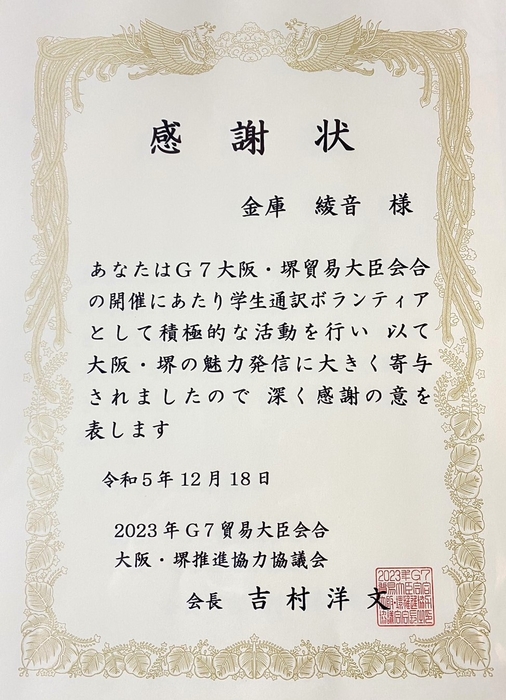 感謝状
金庫 綾音 様
あなたはG7大阪・堺貿易大臣会合
の開催にあたり学生通訳ボランティア
として積極的な活動を行い 以て
大阪・堺の魅力発信に大きく寄与
されましたので 深く感謝の意を
表します
令和5年12月18日
2023年G7貿易大臣会合
大阪・堺推進協力協議会
会長 吉村洋文